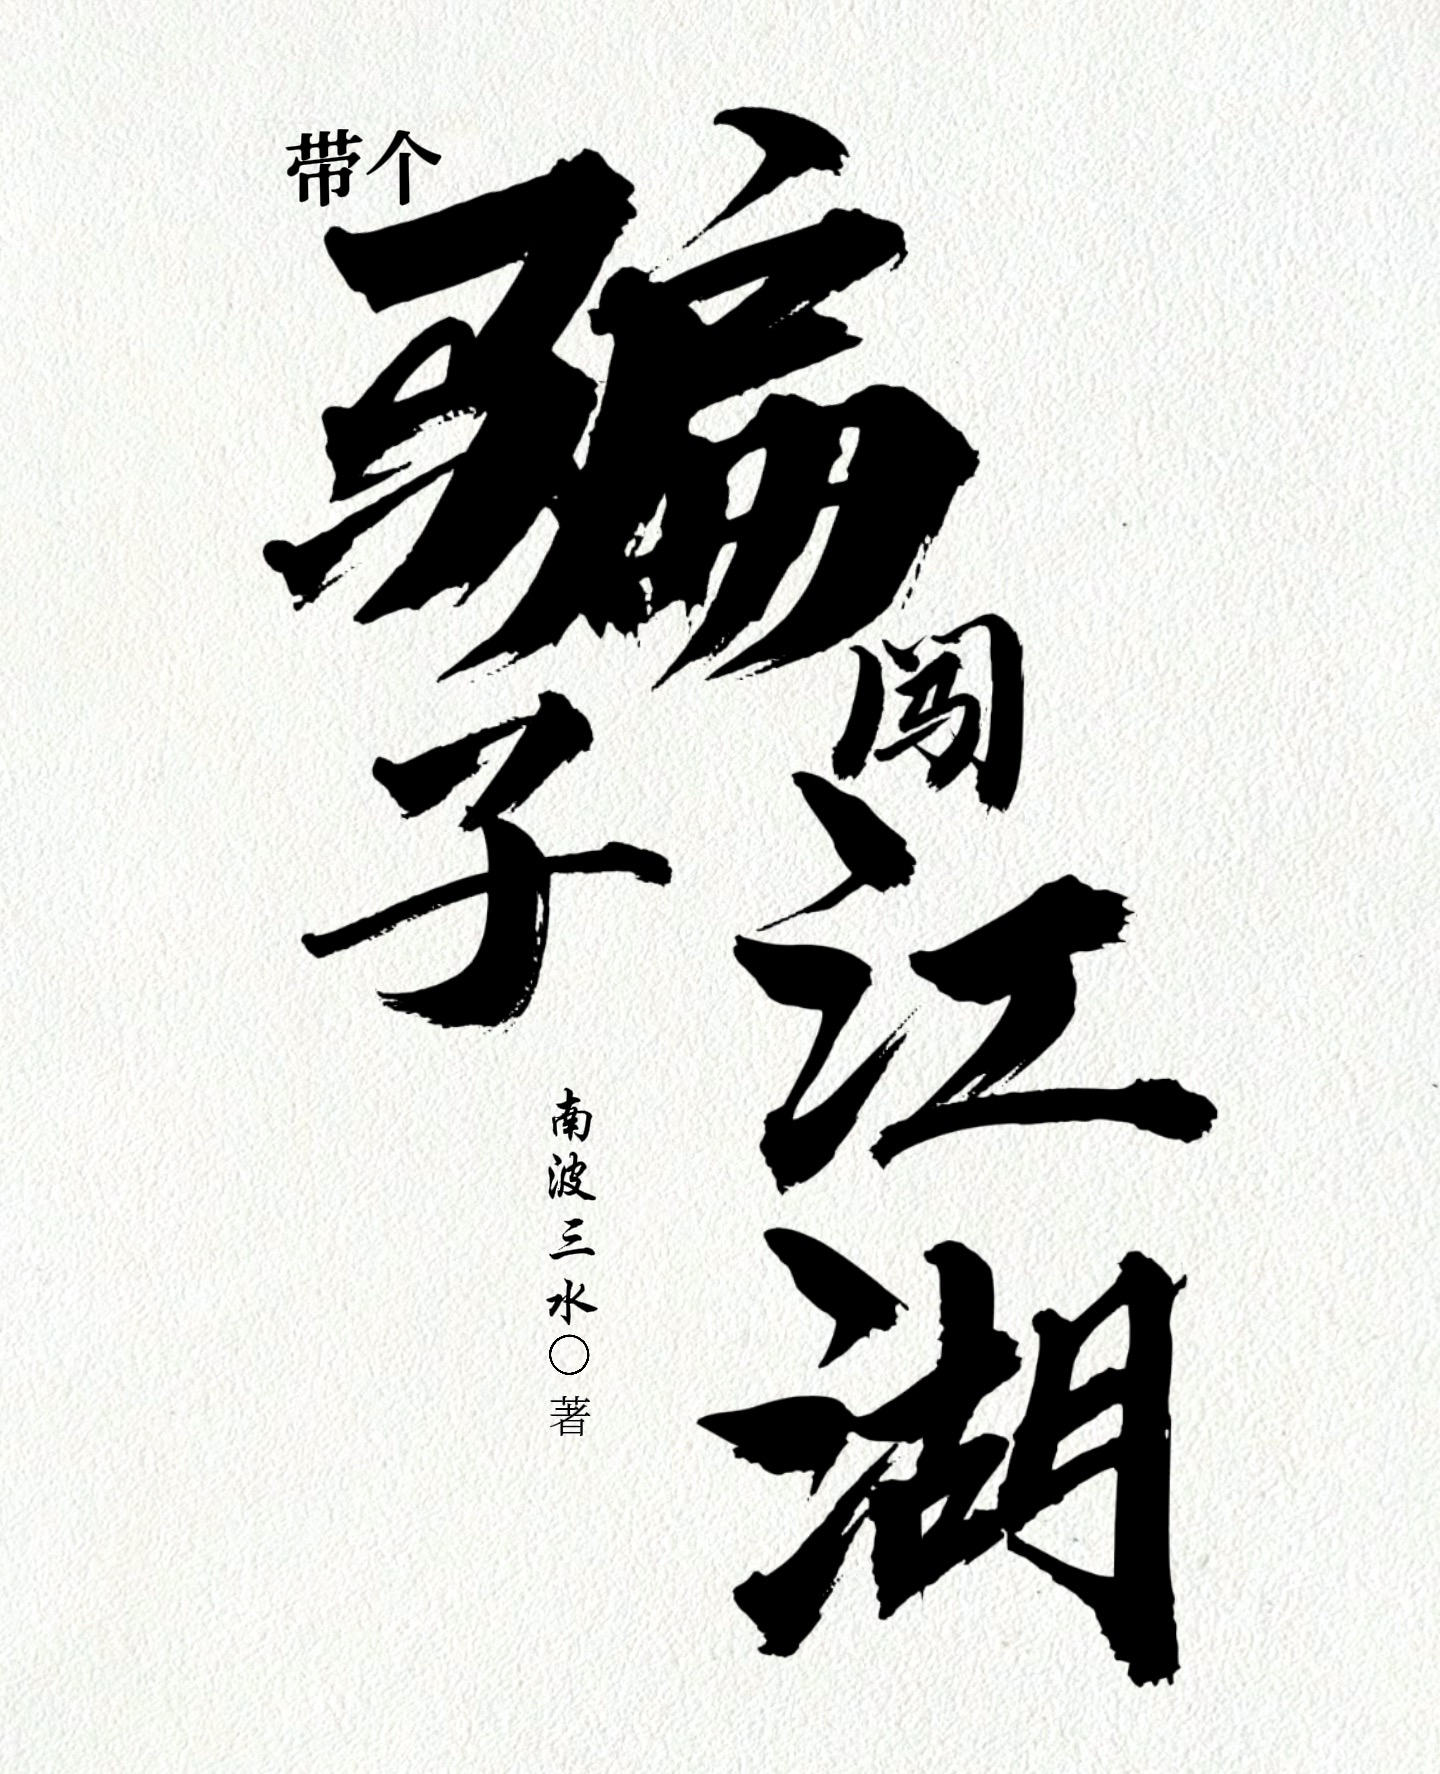 带个
骗子
闯
江湖
南波三水○著